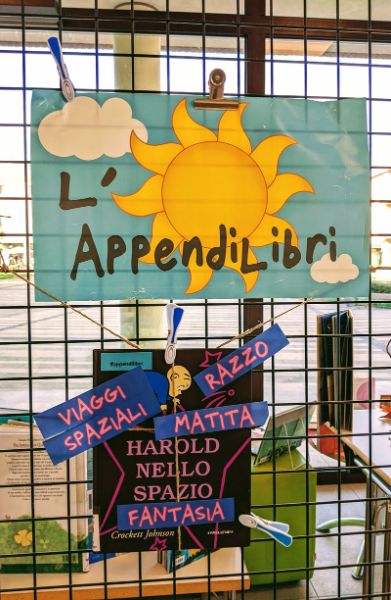 L'
AppendiLibri
#appendilibri
RAZZO
VIAGGI
SPAZIALI
MATITA
HAROLD
NELLO
SPAZIO
FANTASIA
Crockett Johnson